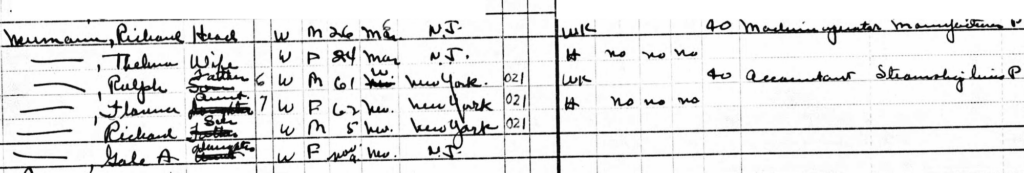 Neumann, Richard Head W M 26 Mar N.J. WK 40 Machine operator Manufacturer P
——, Thelma Wife W F 24 Mar N.J. H no no no
——, Ralph Father 6 W M 61 W New York. 021 WK 40 Accountant Steamship line P
——, Florence Aunt 7 W F 62 Nev. New York 021 H no no no
—— Richard Son W M 5 Nev. New York 021
——, Gale A Daughter W F Nov Nev. N.J.